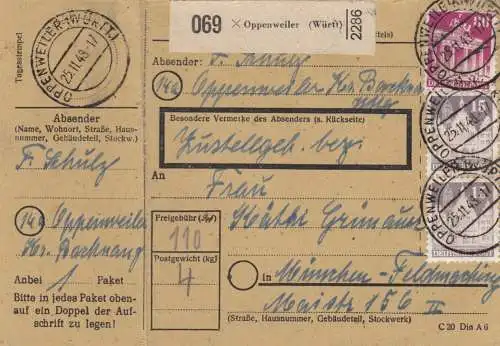 Tagesstempel
OPPENWEILER (WÜRTT)
25.11.48.-17
069 Oppenweiler (Württ) 2286
80
Absender: F. Schulz
14a Oppenweiler Kr. Backnang
Besondere Vermerke des Absenders (s. Rückseite)
Zustellgeb. bez.
Absender
(Name, Wohnort, Straße, Haus-
nummer, Gebäudeteil, Stockw.)
F. Schulz
14a Oppenweiler
Kr. Backnang
Anbei 1 Paket
Bitte in jedes Paket oben-
auf ein Doppel der Auf-
schrift zu legen!
An
Frau
Käthi
Freigebühr
110
Postgewicht (kg)
4
in München - Feldmoching
156 II
(Straße, Hausnummer, Gebäudeteil, Stockwerk)
C 20 Din A 6
15
OPPENWEILER (WÜRTT)
25.11.48.-17